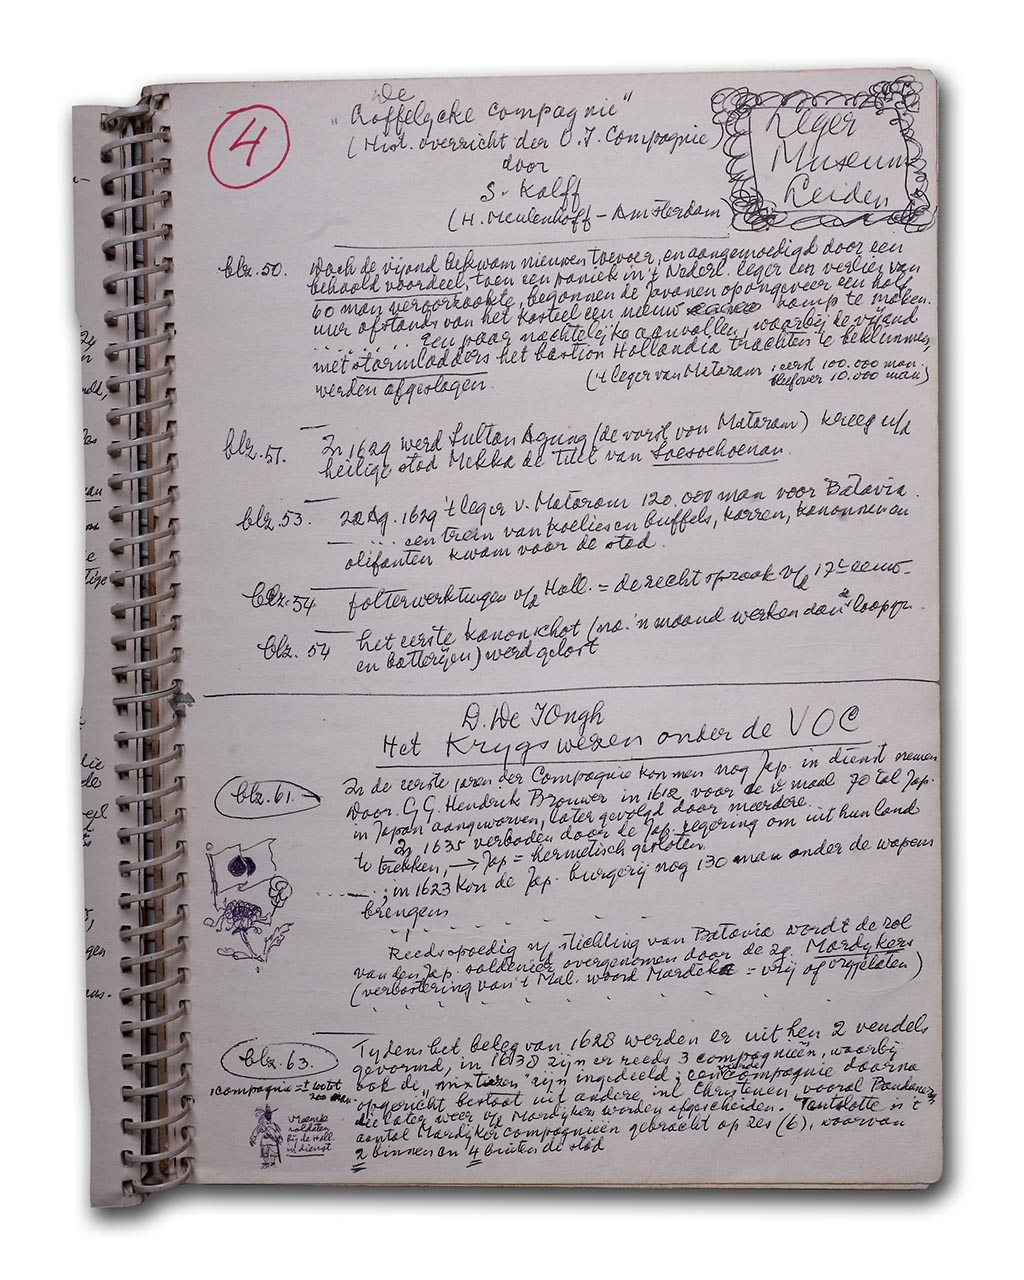 4
De
"Loffelycke Compagnie"
(Hist. overzicht der O.I. Compagnie)
door
S. Kalff
(H. Meulenhoff - Amsterdam
Leger
Museum
Leiden
blz. 50. Doch de vijand bekwam nieuwen toevoer, en aangemoedigd door een
behaald voordeel, toen een paniek in 't Nederl. leger een verlies van
60 man veroorzaakte, begonnen de Javanen op ongeveer een half
uur afstands van het kasteel een nieuw kamp te maken.
........ Een paar nachtelijke aanvallen, waarbij de vijand
met stormladders het bastion Hollandia trachten te beklimmen,
werden afgeslagen. ('t leger van Mataram: eerst 100.000 man.
bleef over 10.000 man)
blz. 51. In 1629 werd Sultan Agung (de vorst van Mataram) kreeg v/d
heilige stad Mekka de titel van Soesoehoenan.
blz. 53. 22 Ag. 1629 't leger v. Mataram 120.000 man voor Batavia.
..... een trein van koelies en buffels, karren, kanonnen en
olifanten kwam voor de stad.
blz. 54 folterwerktuigen v/d Holl. = de rechtspraak v/d 17e eeuw.
blz. 54 het eerste kanonschot (na 'n maand werken aan loopgr.
en batterijen) werd gelost
D. De Iongh
Het Krygswezen onder de VOC
blz. 61. In de eerste jaren der Compagnie kon men nog Jap. in dienst nemen
Door G G Hendrik Brouwer in 1612 voor de 1e maal 70 tal Jap.
in Japan aangeworven, later gevolgd door meerdere.
In 1635 verboden door de Jap. regering om uit hun land
te trekken, → Jap = hermetisch gesloten.
......; in 1623 kon de Jap. burgerij nog 130 man onder de wapens
brengen
Reeds spoedig n/ stichting van Batavia wordt de rol
van den Jap. soldenier overgenomen door de zg. Mardykers
(verbastering van 't Mal. woord Mardeka = vrij of vrijgelaten)
blz. 63. Tydens het beleg van 1628 werden er uit hen 2 vendels
gevormd, in 1638 zijn er reeds 3 compagnieën, waarbij
ook de "mixtiezen" zijn ingedeeld; een compagnie daarna
opgericht bestaat uit andere inl. Christenen, vooral Pandanezen,
die later weer v/d Mardijkers worden afgescheiden. Tenslotte is 't
aantal Mardijker compagnieën gebracht op zes (6), waarvan
2 binnen en 4 buiten de stad
1 compagnie = ±
200 man
soldaten
bij de Holl.
in dienst